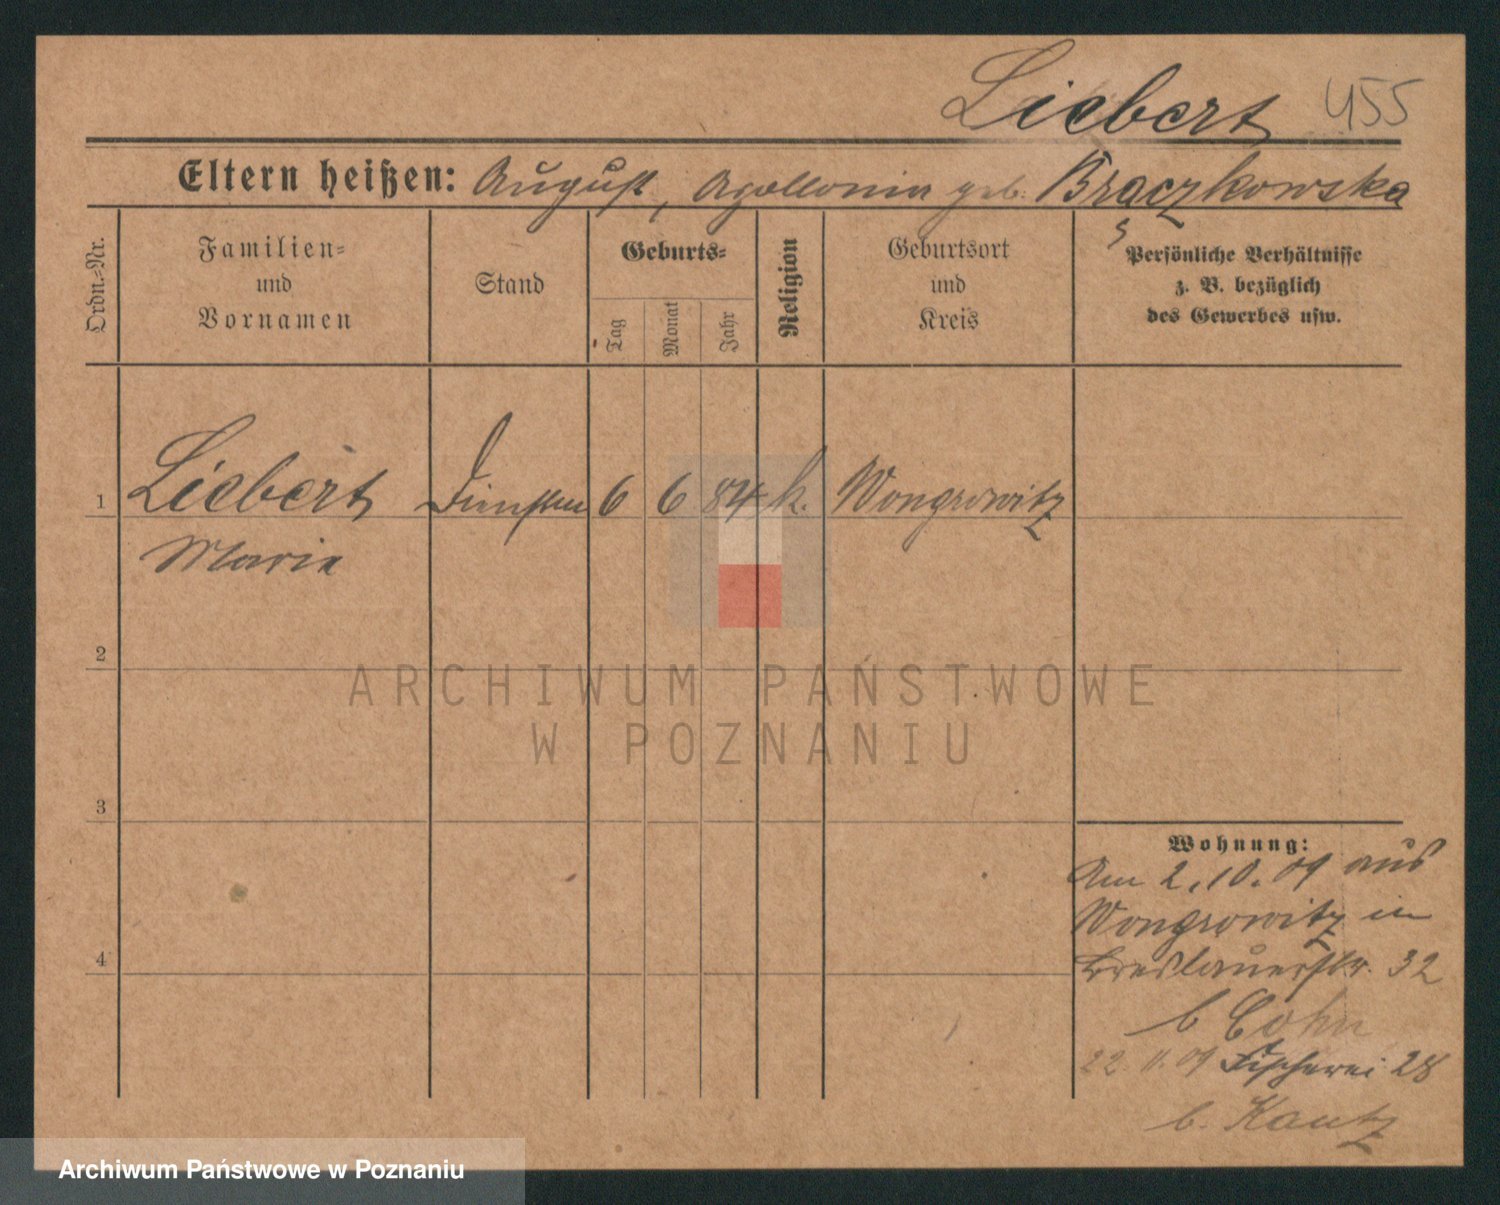 Liebert 455
Eltern heißen: August, Apollonia geb. Braczkowska
Ordn.-Nr.
Familien-
und
Vornamen
Stand
Geburts-
Tag
Monat
Jahr
Religion
Geburtsort
und
Kreis
Persönliche Verhältnisse
z. B. bezüglich
des Gewerbes usw.
1 Liebert 6 6 84 k. Wongrowitz
Maria
2
ARCHIWUM PAŃSTWOWE
W POZNANIU
3
Wohnung:
Am 2.10.09 aus
Wongrowitz in
Breslauerstr. 32
b Cohn
22.11.09 Fischerei 28
b. Kautz
4
Archiwum Państwowe w Poznaniu